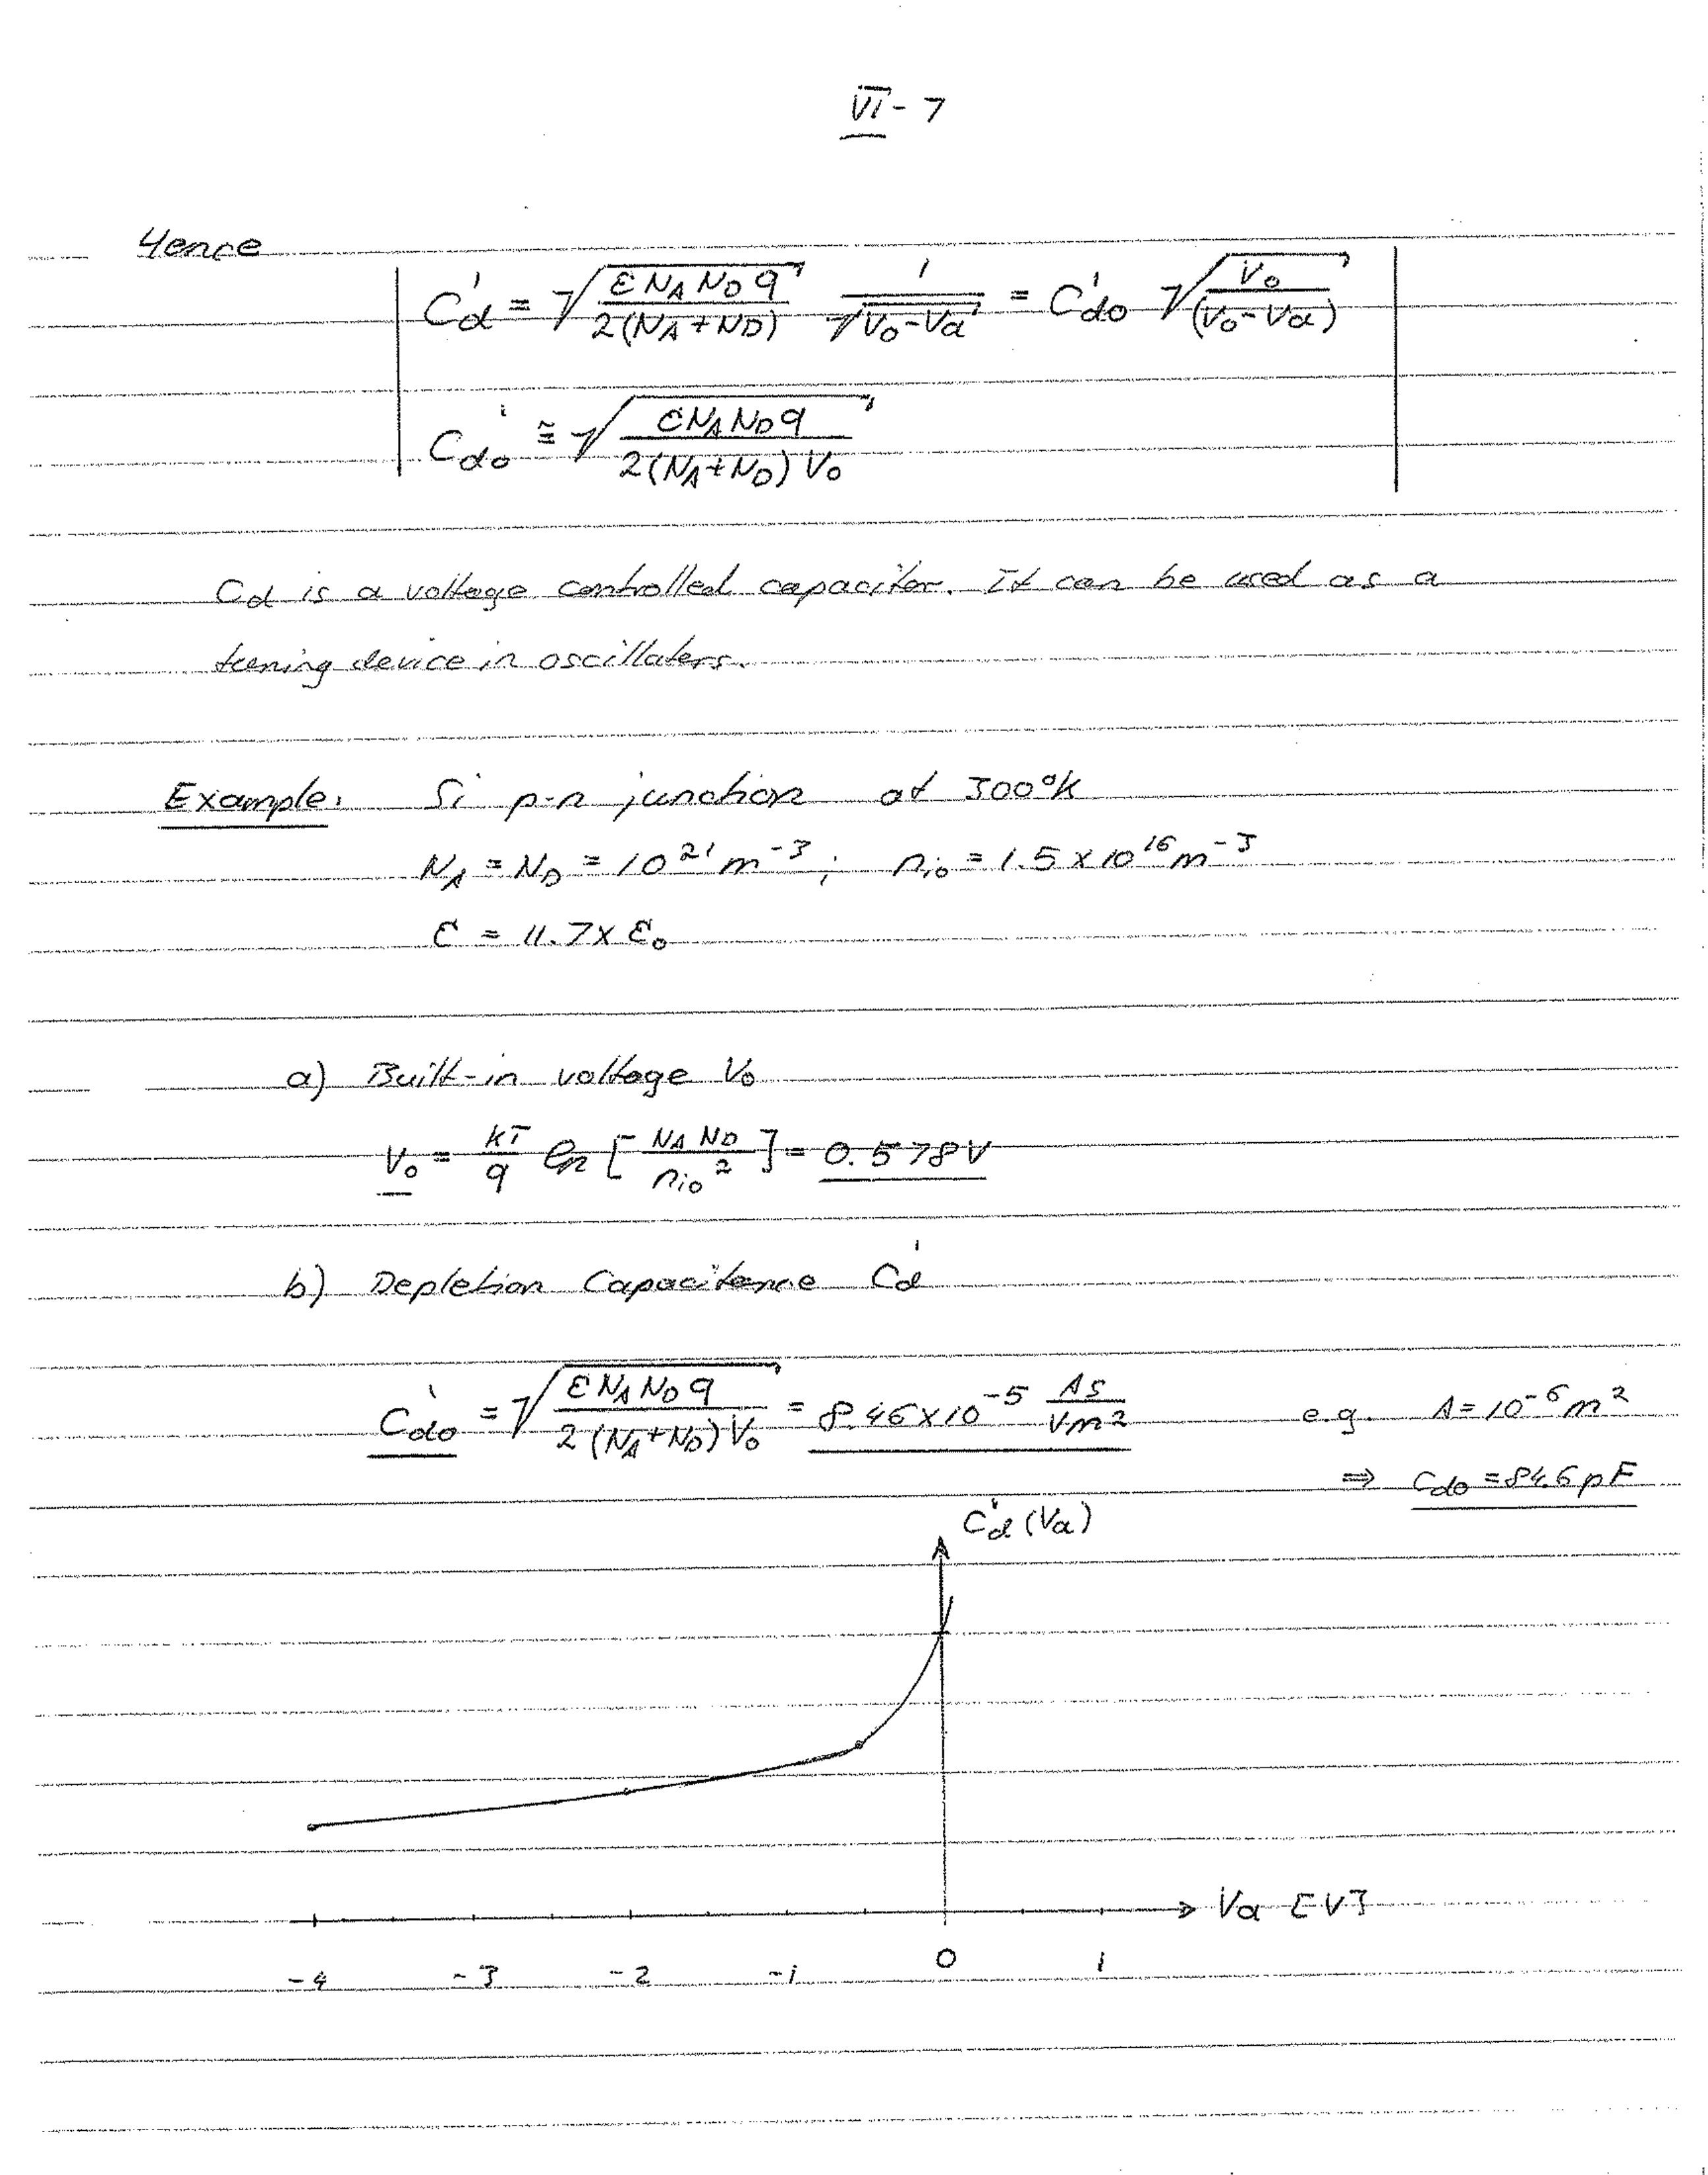 VI - 7
Hence
C'd = √(εNAND q / 2(NA+ND)) 1/√(V0-Va) = C'do √(V0/(V0-Va))
C'do ≅ √(εNAND q / 2(NA+ND) V0)
Cd is a voltage controlled capacitor. It can be used as a
tuning device in oscillators.
Example: Si p-n junction at 300°K
NA = ND = 10^21 m^-3 ; nio = 1.5 x 10^16 m^-3
ε = 11.7 x ε0
a) Built-in voltage V0
V0 = kT/q ln [NA ND / nio^2] = 0.578V
b) Depletion Capacitance C'd
C'do = √(εNAND q / 2(NA+ND)V0) = 8.46 x 10^-5 As/Vm^2 e.g. A = 10^-6 m^2
⇒ Cdo = 84.6 pF
C'd (Va)
Va [V]
-4 -3 -2 -1 0 1